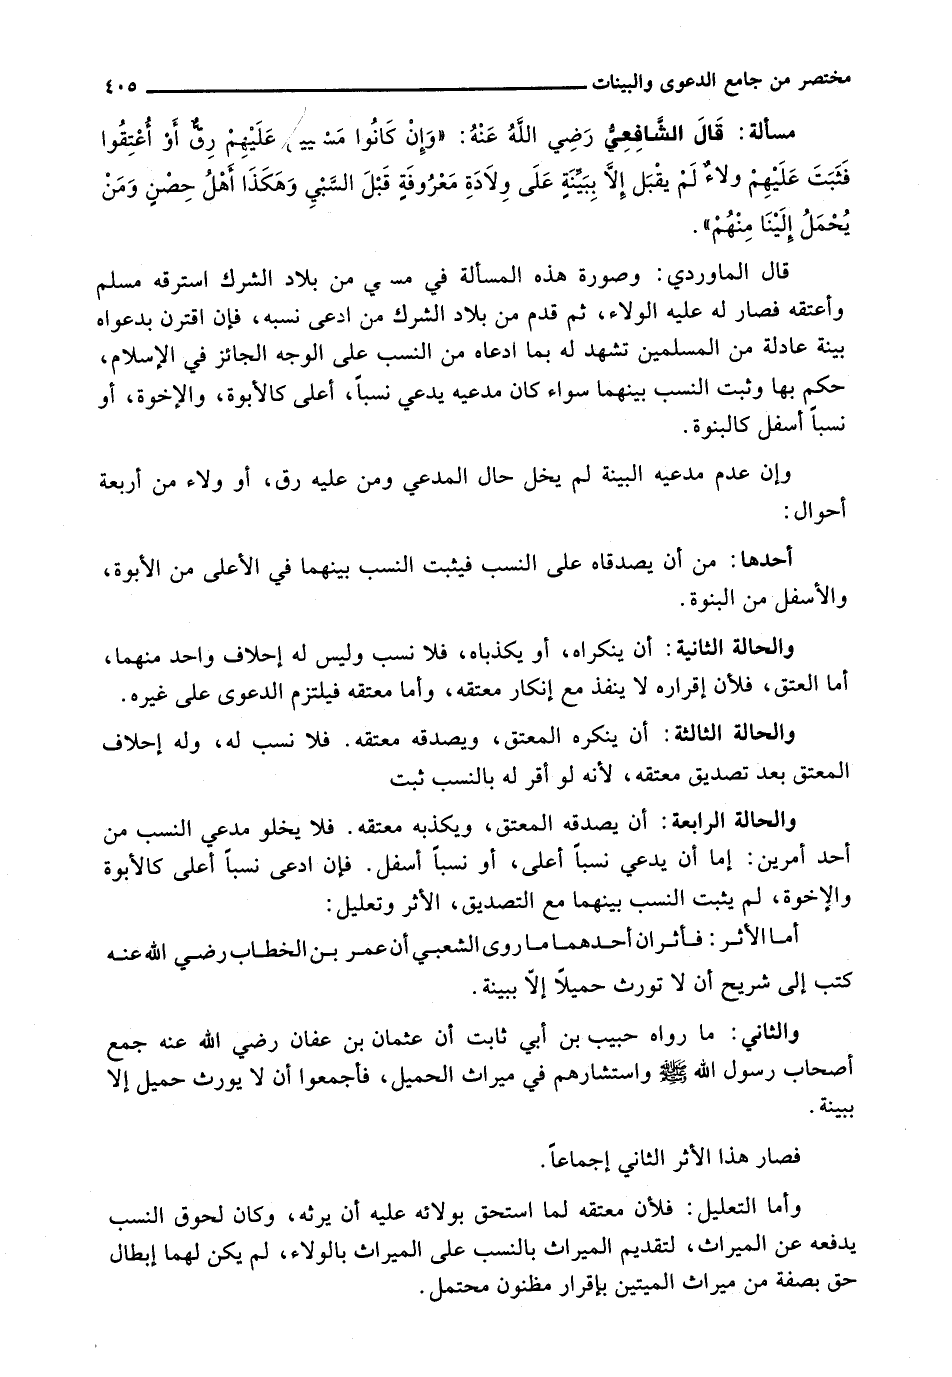 مختصر من جامع الدعوى والبينات ــــــ ٤٠٥
مسألة: قَالَ الشَّافِعِيُّ رَضِيَ اللَّهُ عَنْهُ: «وَإِنْ كَانُوا عَلَيْهِمْ رِقٌّ أَوْ أُعْتِقُوا
فَثَبَتَ عَلَيْهِمْ ولاءٌ لَمْ يقبَل إِلاَّ بِبَيِّنَةٍ عَلَى وِلاَدَةٍ مَعْرُوفَةٍ قَبْلَ السَّبْيِ وَهَكَذَا أَهْلُ حِصْنٍ وَمَنْ
يُحْمَلُ إِلَيْنَا مِنْهُمْ».
قال الماوردي: وصورة هذه المسألة في من بلاد الشرك استرقه مسلم
وأعتقه فصار له عليه الولاء، ثم قدم من بلاد الشرك من ادعى نسبه، فإن اقترن بدعواه
بينة عادلة من المسلمين تشهد له بما ادعاه من النسب على الوجه الجائز في الإسلام،
حكم بها وثبت النسب بينهما سواء كان مدعيه يدعي نسباً، أعلى كالأبوة، والإخوة، أو
نسباً أسفل كالبنوة.
وإن عدم مدعيه البينة لم يخل حال المدعي ومن عليه رق، أو ولاء من أربعة
أحوال:
أحدها: من أن يصدقاه على النسب فيثبت النسب بينهما في الأعلى من الأبوة،
والأسفل من البنوة.
والحالة الثانية: أن ينكراه، أو يكذباه، فلا نسب وليس له إحلاف واحد منهما،
أما العتق، فلأن إقراره لا ينفذ مع إنكار معتقه، وأما معتقه فيلتزم الدعوى على غيره.
والحالة الثالثة: أن ينكره المعتق، ويصدقه معتقه. فلا نسب له، وله إحلاف
المعتق بعد تصديق معتقه، لأنه لو أقر له بالنسب ثبت
والحالة الرابعة: أن يصدقه المعتق، ويكذبه معتقه. فلا يخلو مدعي النسب من
أحد أمرين: إما أن يدعي نسباً أعلى، أو نسباً أسفل. فإن ادعى نسباً أعلى كالأبوة
والإخوة، لم يثبت النسب بينهما مع التصديق، الأثر وتعليل:
أما الأثر: فأثران أحدهما ما روى الشعبي أن عمر بن الخطاب رضي الله عنه
كتب إلى شريح أن لا تورث حميلاً إلاّ ببينة.
والثاني: ما رواه حبيب بن أبي ثابت أن عثمان بن عفان رضي الله عنه جمع
أصحاب رسول الله ﷺ واستشارهم في ميراث الحميل، فأجمعوا أن لا يورث حميل إلا
ببينة.
فصار هذا الأثر الثاني إجماعاً.
وأما التعليل: فلأن معتقه لما استحق بولائه عليه أن يرثه، وكان لحوق النسب
يدفعه عن الميراث، لتقديم الميراث بالنسب على الميراث بالولاء، لم يكن لهما إبطال
حق بصفة من ميراث الميتين بإقرار مظنون محتمل.